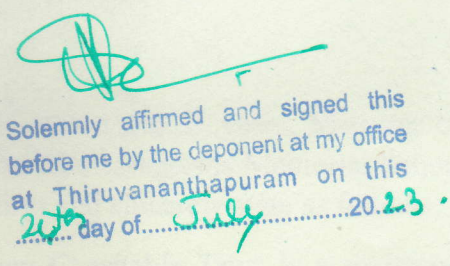 Solemnly affirmed and signed this
before me by the deponent at my office
at Thiruvananthapuram on this
day of July 2023.